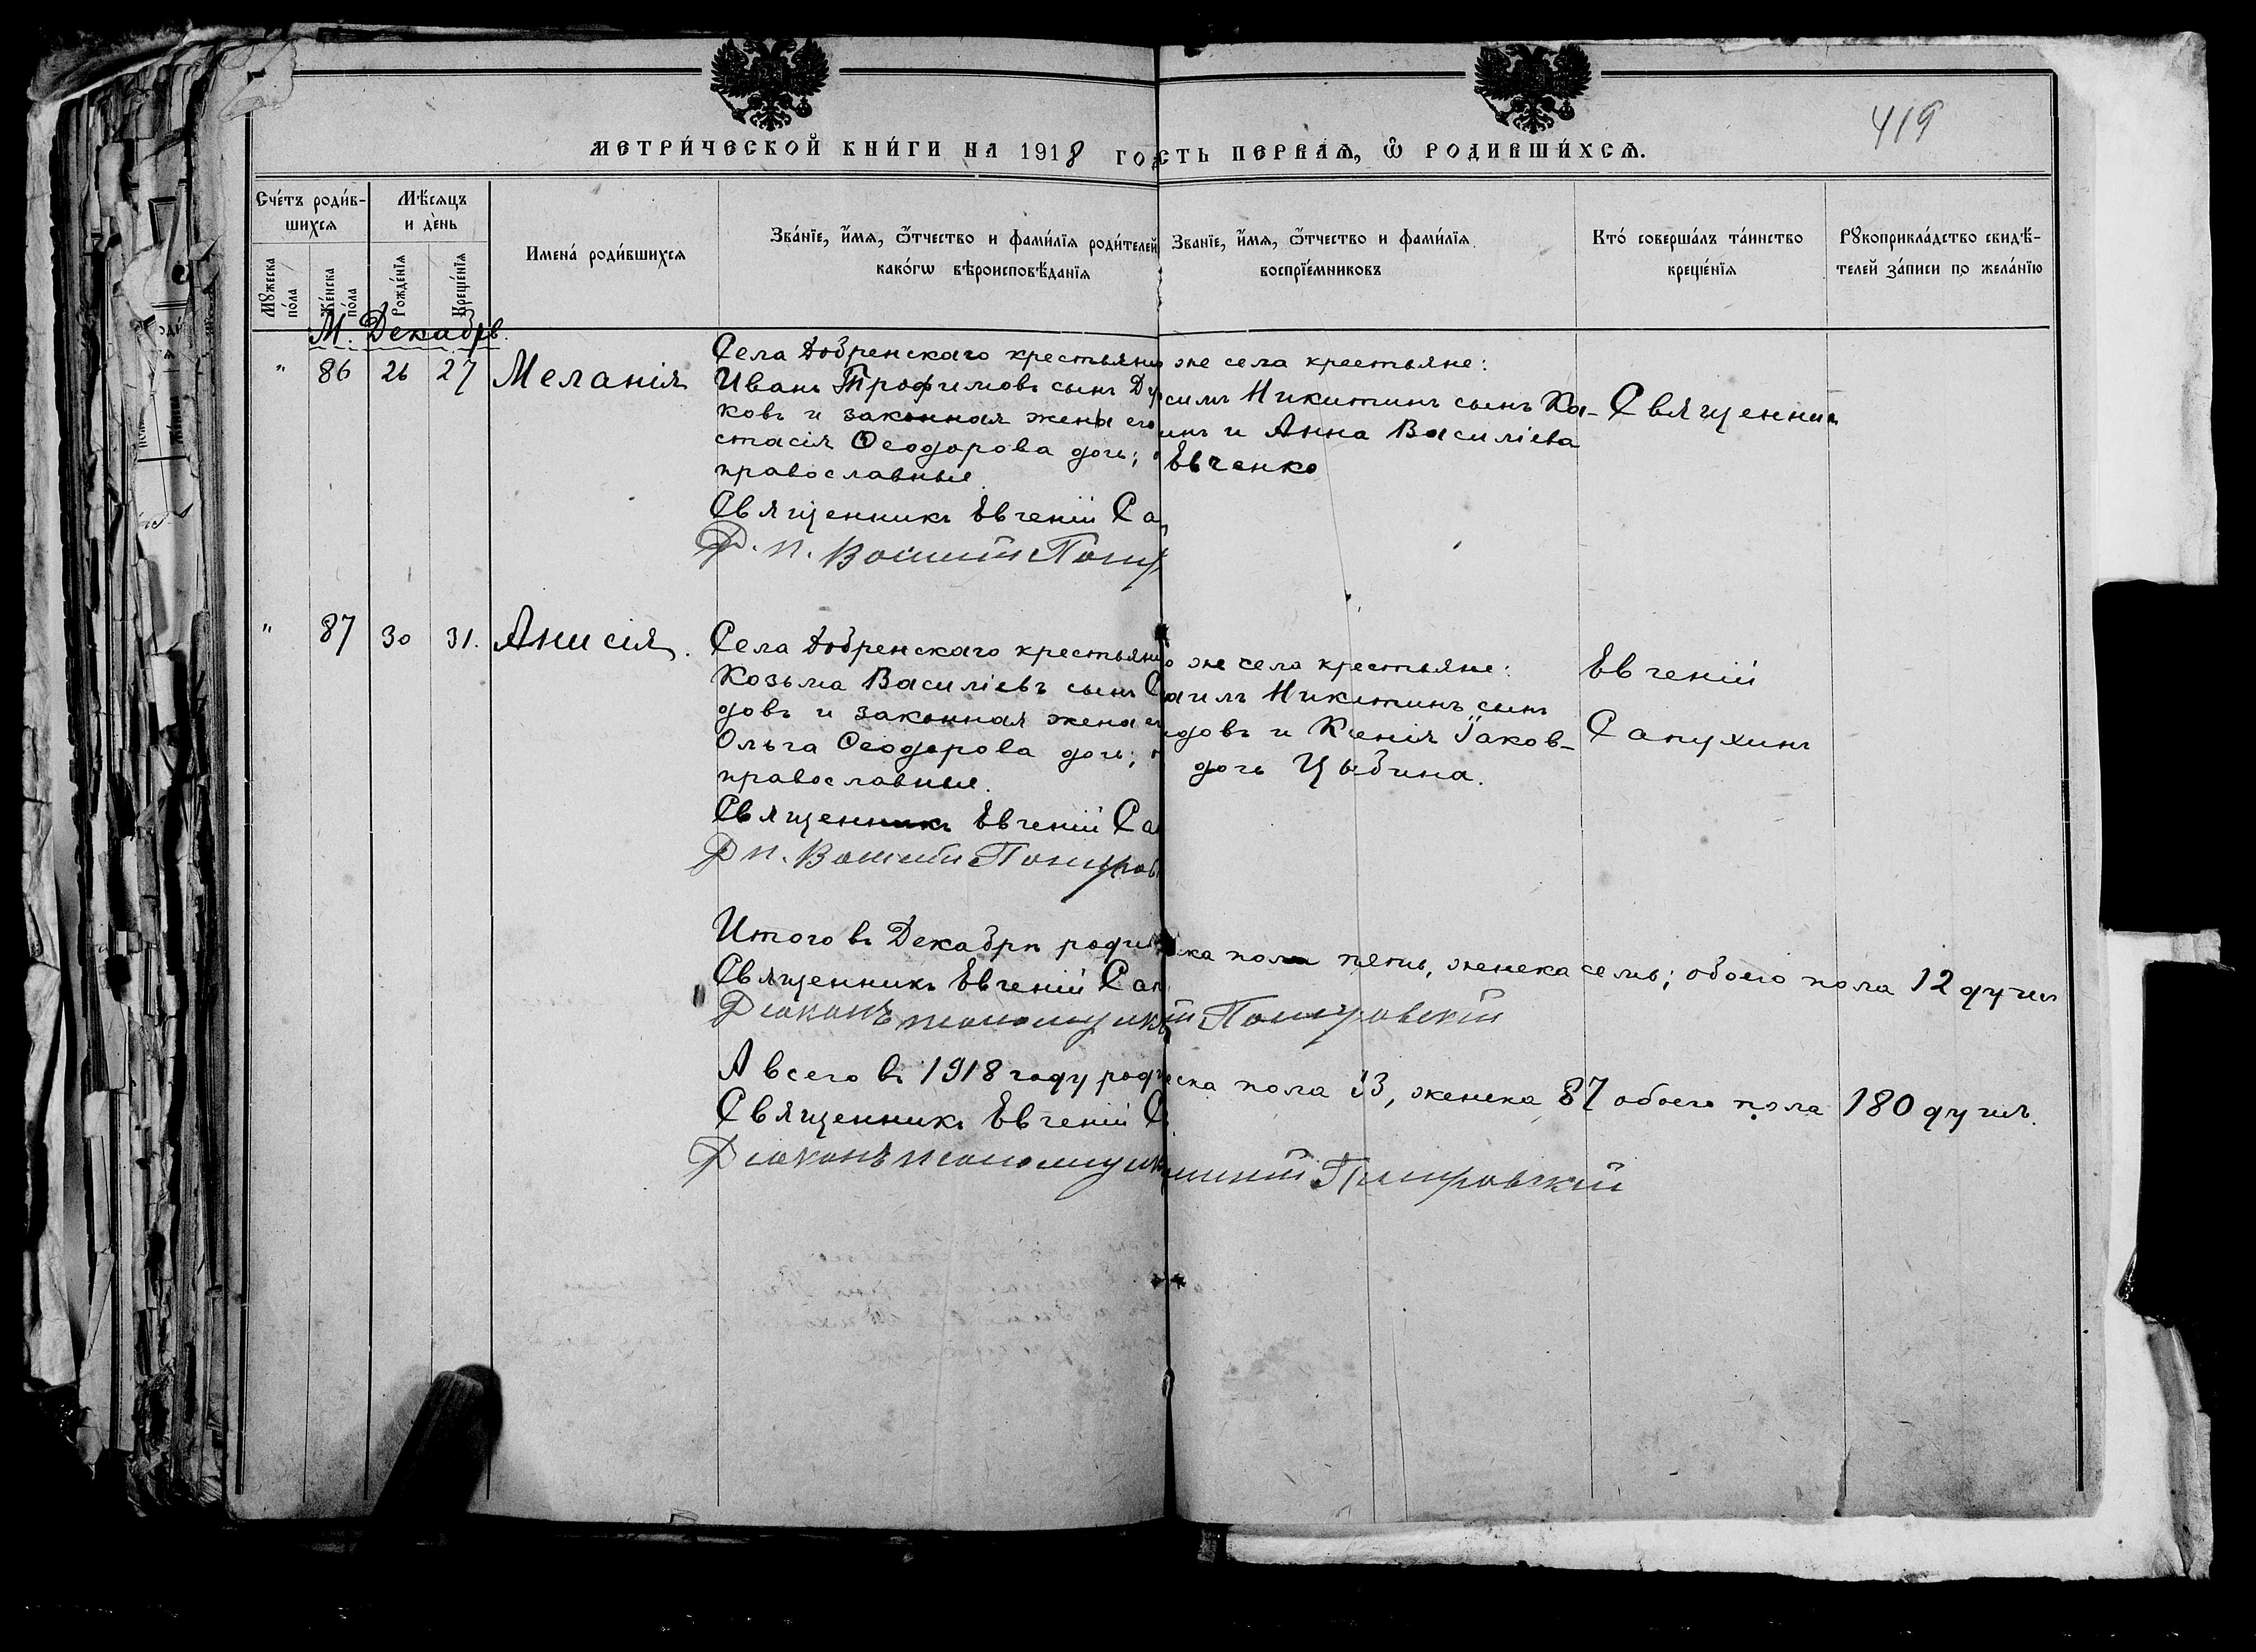 419
МЕТРИ́ЧЕСКОЙ КНИ́ГИ НА 1918 ГО
СТЬ ПЕРВАЯ, Ѿ РОДИВШИ́ХСѦ.
Сче́тъ роди́в-
шихсѧ
Мѣ́сѧцъ
и де́нь
Мꙋжеска по́ла
Же́нска по́ла
Рожде́нїѧ
Креще́нїѧ
Имена́ роди́вшихсѧ
Зва́нїе, и҆́мѧ, ѻ҆́тчество и фами́лїѧ роди́телей
како́гѡ вѣроисповѣ́данїѧ
Зва́нїе, и҆́мѧ, ѻ҆́тчество и фами́лїѧ
воспрїе́мниковъ
Кто́ соверша́лъ та́инство
креще́нїѧ
Рꙋкоприкла́дство свидѣ́-
телей за́писи по жела́нїю
М. Декабрь.
" 86 26 27 Меланія
Села Добренскаго крестьянин
Иванъ Трофимовъ сынъ
ковъ и законная жена его
стасія Ѳеодорова дочь;
православные.
Священникъ Евгеній Са
же села крестьяне:
силъ Никитинъ сынъ Ка-
инъ и Анна Василіева
Евченко
Священник
" 87 30 31. Анисія.
Села Добренскаго крестьянин
Козьма Василіевъ сынъ
довъ и законная жена
Ольга Ѳеодорова дочь;
православные.
Священникъ Евгеній Са
же села крестьяне:
аилъ Никитинъ сынъ
довъ и Ксенія Іаков-
дочь Цыбина.
Евгеній
Сапухинъ
Итого въ Декабрѣ роди
ска пола пять, женска семь; обоего пола 12 душъ
Священникъ Евгеній Сап
Діаконъ псаломщикъ
й Покровскій
А всего въ 1918 году род
ска пола 93, женска 87 обоего пола 180 душъ.
Священникъ Евгеній С
Діаконъ псаломщикъ
Покровскій